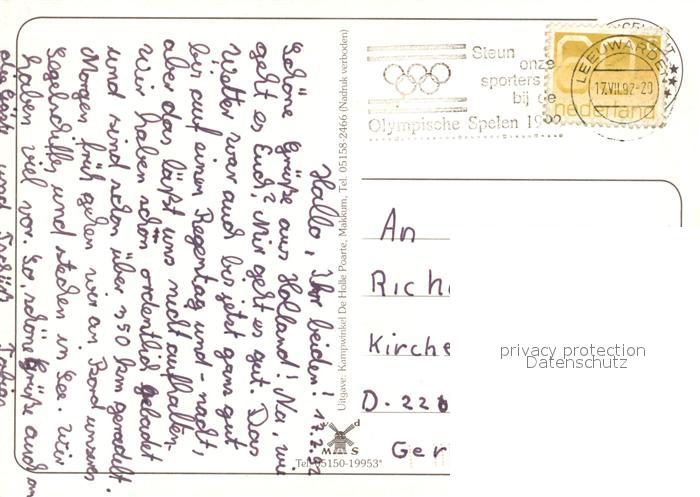 Hallo, Ihr beiden! 17.7.92
Schöne Grüße aus Holland! Na, wie
geht es Euch? Mir geht es gut. Das
Wetter war auch bis jetzt ganz gut
bis auf einen Regentag und -nacht,
aber das läßt uns nicht aufhalten.
Wir haben schon ordentlich gebadet
und sind schon über 350 km geradelt.
Morgen früh gehen wir an Bord unseres
Segelschiffes und stechen in See. Wir
haben viel vor. So, schöne Grüße auch an
und Tschüß
Uitgave: Kampwinkel De Holle Poarte, Makkum, Tel. 05158-2466 (Nadruk verboden)
Steun
onze
sporters
bij de
Olympische Spelen 1992
LEEUWARDEN
17.VII.92-20
nederland
An
Rich
Kirche
D-226
Ger
privacy protection
Datenschutz
Tel. 05150-19953*